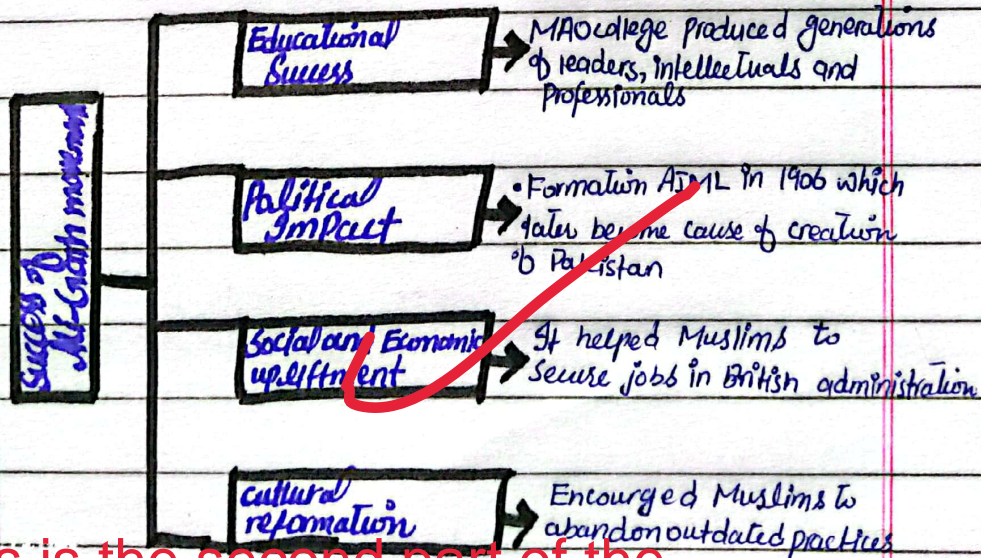 Success of
Educational
Success
MAO college produced generations
of leaders, intellectuals and
Professionals
Political
Impact
• Formation AIML in 1906 which
later become cause of creation
of Pakistan
Social and Economic
upliftment
It helped Muslims to
secure jobs in British administration
Cultural
reformation
Encourged Muslims to
abandon outdated practices
s is the second part of the